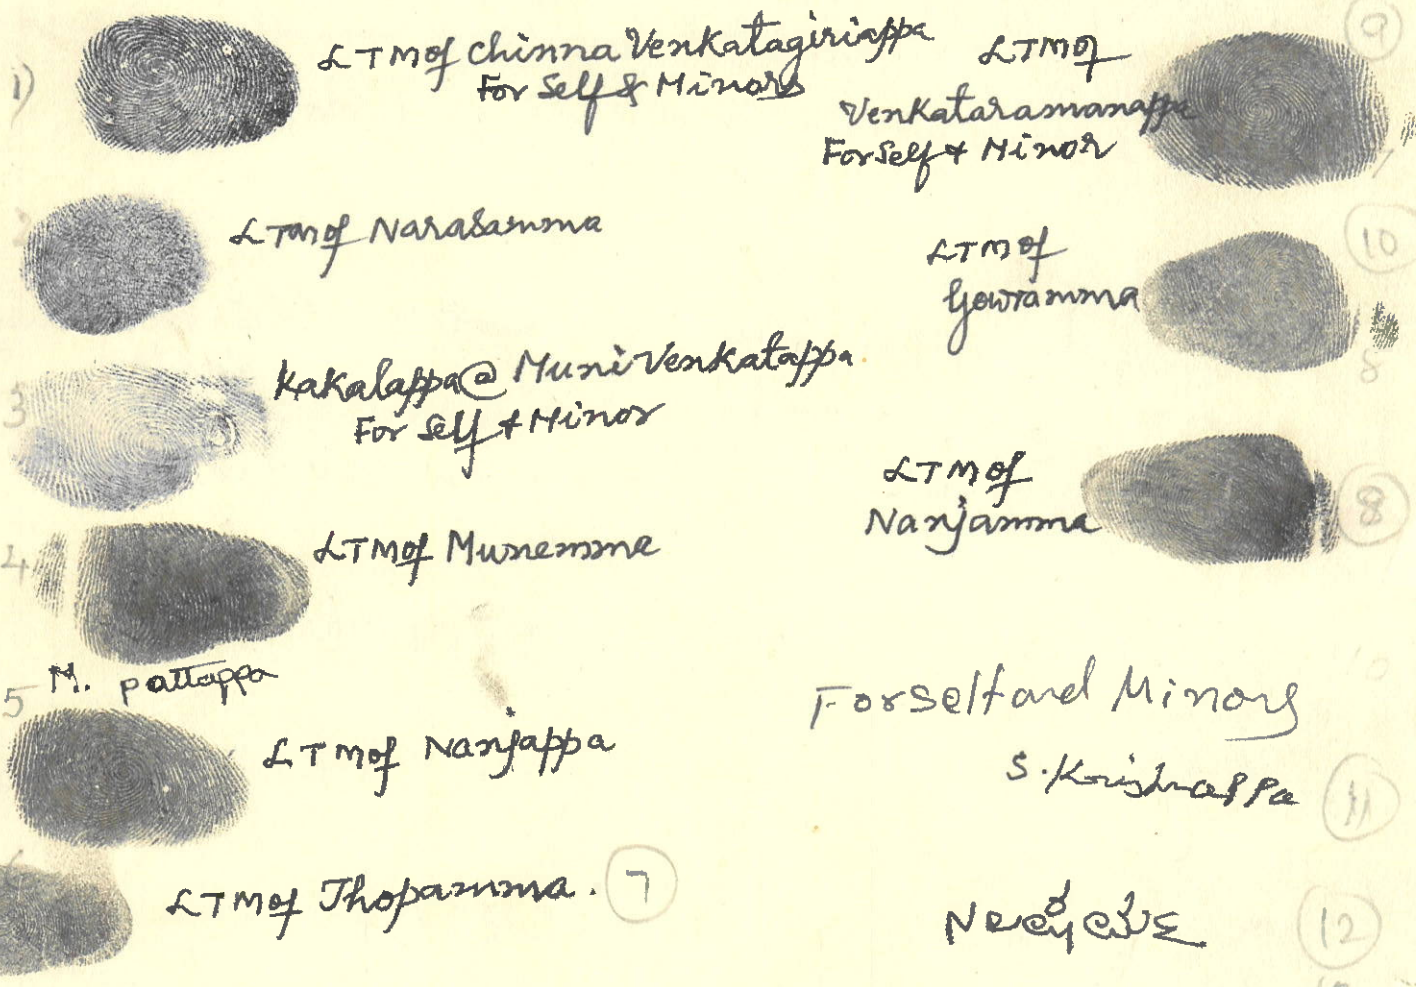 1) LTM of Chinna Venkatagiriappa
For Self & Minors
2 LTM of Narasamma
3 Kakalappa @ Muni Venkatappa
For Self & Minor
4 LTM of Munemma
M. Pattappa
5 LTM of Nanjappa
LTM of Thopamma. 7
9
LTM of
Venkataramanappa
For Self & Minor
10
LTM of
Gowramma
8
LTM of
Nanjamma
8
For Self and Minors
S. Krishnappa
11
12